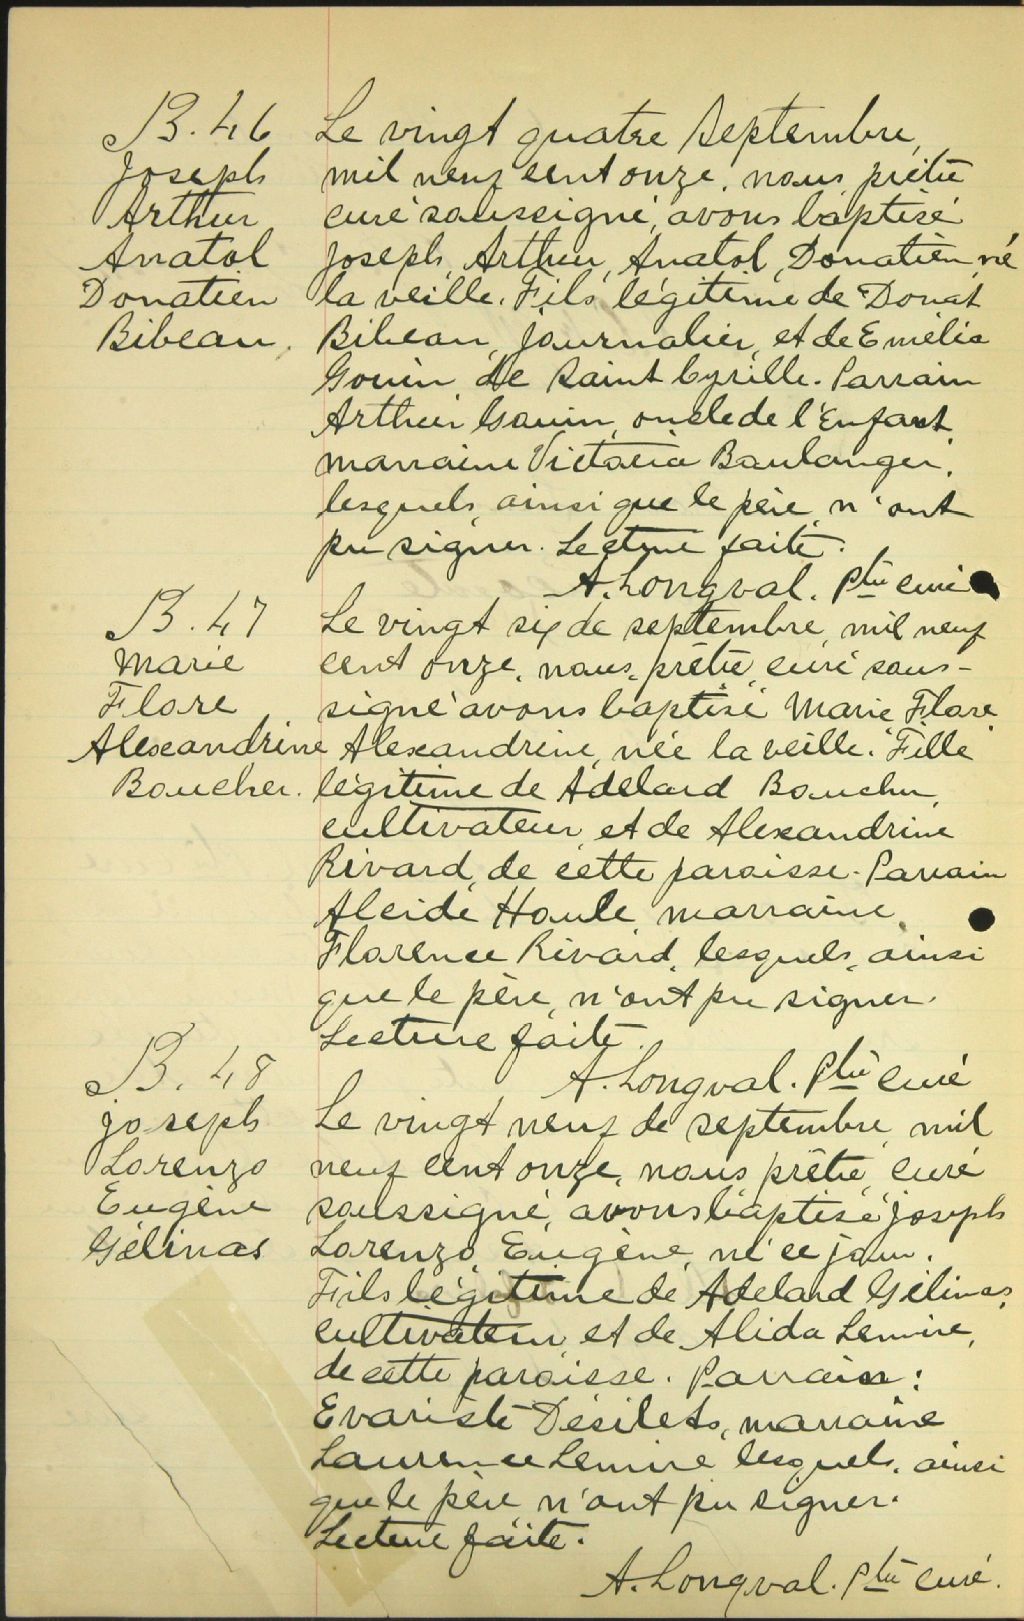 B. 46
Joseph
Arthur
Anatol
Donatien
Bibeau.
Le vingt quatre Septembre,
mil neuf cent onze, nous, prêtre
curé soussigné, avons baptisé
Joseph, Arthur, Anatol, Donatien, né
la veille. Fils légitime de Donat
Bibeau, journalier, et de Emélia
Gouin de Saint Cyrille. Parrain
Arthur Gouin, oncle de l'Enfant,
marraine Victoria Boulanger,
lesquels, ainsi que le père, n'ont
pu signer. Lecture faite.
A. Longval. Ptre curé
B. 47
Marie
Flore
Alexandrine
Boucher.
Le vingt six de septembre, mil neuf
cent onze, nous, prêtre, curé sous-
signé avons baptisé Marie Flore
Alexandrine, née la veille. Fille
légitime de Adelard Boucher,
cultivateur, et de Alexandrine
Rivard, de cette paroisse. Parrain
Alcide Houle, marraine,
Florence Rivard, lesquels, ainsi
que le père, n'ont pu signer.
Lecture faite.
A. Longval. Ptre curé
B. 48
Joseph
Lorenzo
Eugène
Gélinas
Le vingt neuf de septembre, mil
neuf cent onze, nous, prêtre, curé
soussigné, avons baptisé Joseph
Lorenzo, Eugène, né ce jour.
Fils légitime de Adelard Gélinas,
cultivateur, et de Alida Lemire,
de cette paroisse. Parrain:
Evariste Désilets, marraine
Laurence Lemire lesquels, ainsi
que le père n'ont pu signer.
Lecture faite.
A. Longval. Ptre curé.